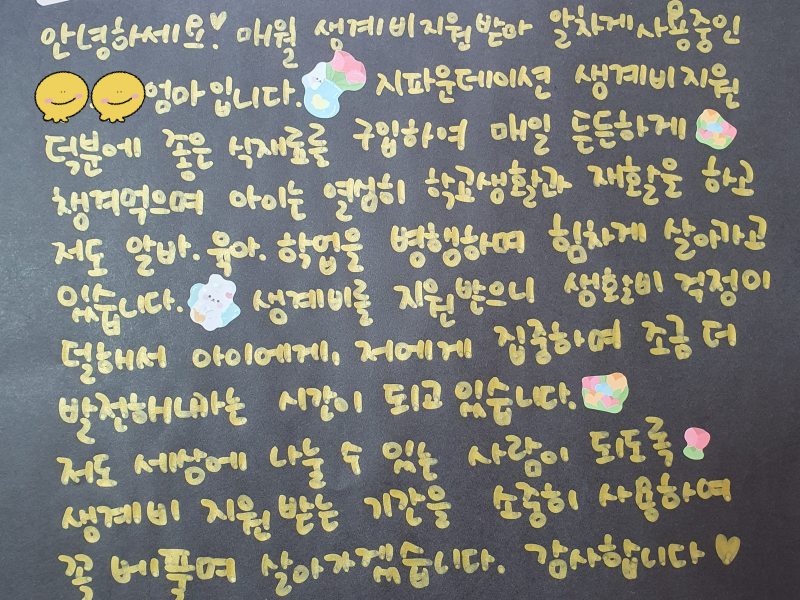 안녕하세요!♡ 매월 생계비지원받아 알차게사용중인
엄마입니다. 지파운데이션 생계비지원
덕분에 좋은 식재료를 구입하여 매일 든든하게
챙겨먹으며 아이는 열심히 학교생활과 재활을 하고
저도 알바. 육아. 학업을 병행하며 힘차게 살아가고
있습니다. 생계비를 지원받으니 생활비 걱정이
덜해서 아이에게, 저에게 집중하여 조금 더
발전해나가는 시간이 되고있습니다.
저도 세상에 나눌 수 있는 사람이 되도록
생계비 지원받는 기간을 소중히 사용하여
꼭 베풀며 살아가겠습니다. 감사합니다♡